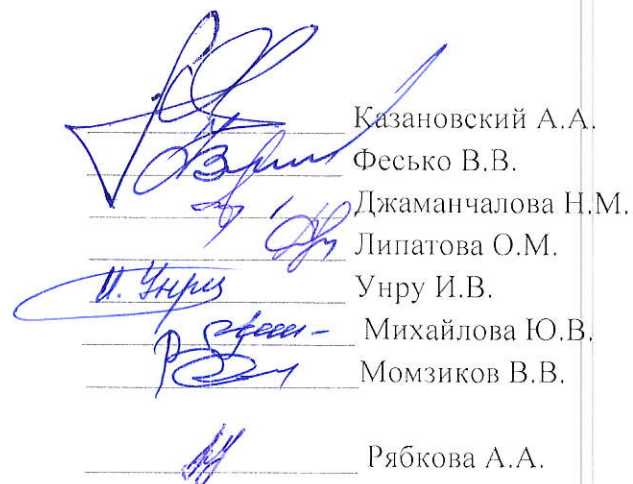 Казановский А.А.
Фесько В.В.
Джаманчалова Н.М.
Липатова О.М.
И. Унру Унру И.В.
Михайлова Ю.В.
Момзиков В.В.
Рябкова А.А.